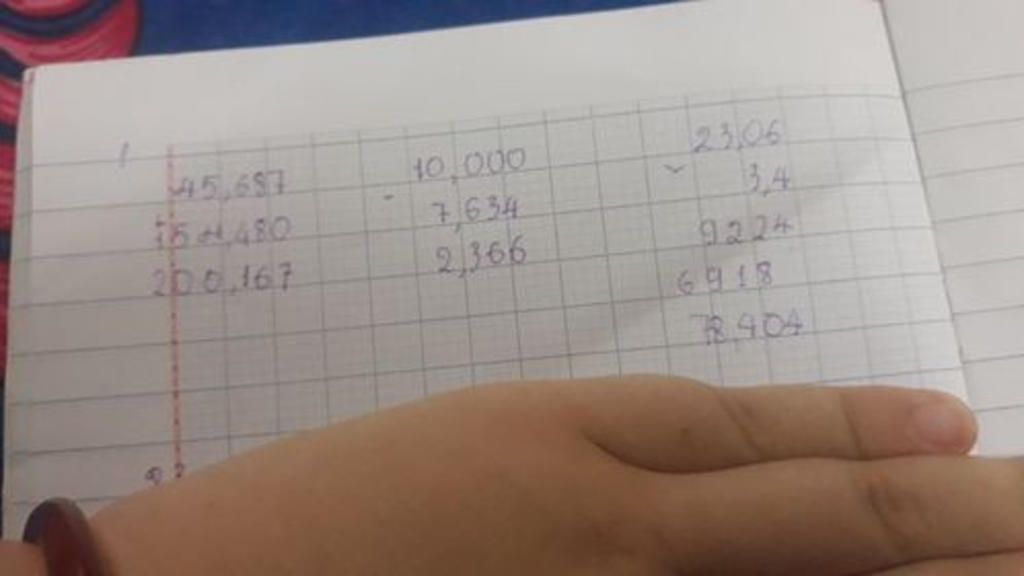 1
45,687
+ 154,480
200,167
10,000
- 7,634
2,366
23,06
3,4
9224
6918
78,404